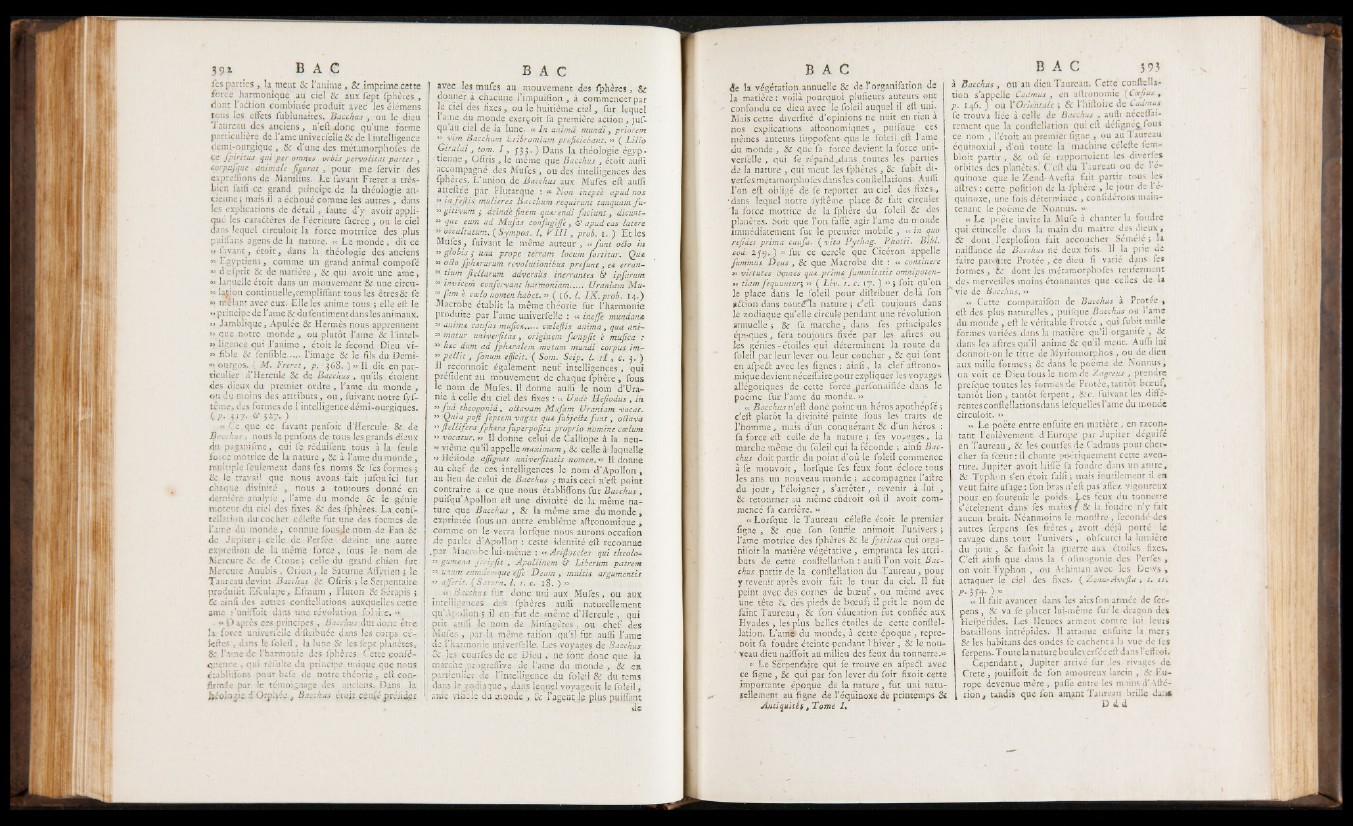 392 B A C
B A C
ses parties, la meut & l'anime, & imprime cette
force harmonique au ciel & aux sept sphères,
dont l'action combinée produit avec les élémens
tous les effets sublunaires. Bacchus, ou le dieu
Taureau des anciens, n'est donc qu'une forme
particulière de l'ame universelle & de l'intelligence
demi-ourgique, & d'une des métamorphoses de
ce spiritus qui per omnes orbis pervolitat partes,
corpusque animale figurat, pour me servir des
expressions de Manilius. Le savant Freret a très-
bien saisi ce grand principe de la théologie an-
cienne; mais il a échoué comme les autres, dans
les explications de détail, faute d'y avoir appli-
qué les caractères de l'écriture sacrée, ou le ciel
dans lequel circuloit la force motrice des plus
puissans agens de la nature. « Le monde, dit ce
» savant, étoit, dans la théologie des anciens
» Egyptiens, comme un grand animal composé
» d'esprit & de matière, & qui avoit une ame,
» laquelle étoit dans un mouvement & une circu-
» lation continuelle, remplissant tous les êtres & se
» mêlant avec eux. Elle les anime tous; elle est le
» principe de l'ame & du sentiment dans les animaux.
» Jamblique, Apulée & Hermès nous apprennent
» que notre monde, ou plutôt l'ame & l'intel-
» ligence qui l'anime, étoit le second Dieu vi-
» sible & sensible..... l'image & le fils du Demi-
» ourgos. ( M. Freret, p. 368. ) » Il dit en par-
ticulier d'Hercule & de Bacchus, qu'ils étoient
des dieux du premier ordre, l'ame du monde,
ou du moins des attributs, ou, suivant notre sys-
tême, des formes de l'intelligence démi-ourgiques.
( p. 317. & 327. )
« Ce que ce savant pensoit d'Hercule & de
Bacchus, nous le pensons de tous les grands dieux
du paganisme, qui se réduisent tous à la seule
force motrice de la nature, & à l'ame du monde,
multiple seulement dans ses noms & ses formes;
& le travail que nous avons fait jusqu'ici sur
chaque divinité, nous a toujours donné en
dernière analyse, l'ame du monde & le génie
moteur du ciel des fixes & des sphères. La cons-
tellation du cocher céleste fut une des formes de
l'ame du monde, connue sous le nom de Pan &
de Jupiter; celle de Persée devint une autre
expression de la même force, sous le nom de
Mercure & de Crone; celle du grand chien fut
Mercure Anubis, Orion, le Saturne Assyrien; le
Taureau devint Bacchus & Osiris; le Serpentaire
produisit Esculape, Esmum, Pluton & Sérapis;
& ainsi des autres constellations auxquelles cette
ame s'unissoit dans une révolution solaire. »
« D'après ces principes, Bacchus dut donc être
la force universelle distribuée dans les corps cé-
lestes, dans le soleil, la lune & les sept planètes,
& l'ame de l'harmonie des sphères. Cette consé-
quence, qui résulte du principe unique que nous
établissons pour base de notre théorie, est con-
firmée par le témoignage des anciens. Dans la
théologie d'Orphée, Bacchus étoit censé présider
avec les muses au mouvement des sphères, &
donner à chacune l'impulsion, à commencer par
le ciel des fixes, ou le huitième ciel, sur lequel
l'ame du monde exerçoit sa première action, jus-
qu'au ciel de la lune. « In animâ mundi, priorem
» vim Bacchum Eribromium proficiebant. » ( Lilio
Giraldi, tom. I, 533. ) Dans la théologie égyp-
tienne, Osiris, le même que Bacchus, étoit aussi
accompagné des Muses, ou des intelligences des
sphères. L'union de Bacchus aux Muses est aussi
attestée par Plutarque : « Non ineptè apud nos
» in festis mulieres Bacchum requirunt tanquam fu-
» gitivum; deindè finem quærendi faciunt, dicunt-
» que eum ad Musas confugisse, & apud eas latere
» occultatum. ( Sympos. l. VIII, prob. 1. ) Et les
Muses, suivant le même auteur, « sunt octo in
» globis; una prope terram locum sortitur. Quæ
» octo sphærarum revolutionibus presunt, ex erran-
» tium stellarum adversùs inerrantes & ipsarum
» invicem conservant harmoniam..... Uraniam Mu-
» sam è cælo nomen habet. » ( 16. l. IX. prob. 14. )
Macrobe établit la même théorie sur l'harmonie
produite par l'ame universelle : « inesse mundanæ
» animæ causas musices..... cælestis anima, quâ ani-
» matur universitas, originem sumpsit è musica :
» hæc dum ad sphæralem motum mundi corpus im-
» pellit, sonum efficit. ( Som. Scip. l. II, c. 3. )
Il reconnoît également neuf intelligences, qui
présidoient au mouvement de chaque sphère, sous
le nom de Muses. Il donne aussi le nom d'Ura-
nie à celle du ciel des fixes : « Undè Hesiodus, in
» suâ theogoniâ, octavam Musam Uraniam vocat.
» Quia post septem vagas quæ subjectæ sunt, octava
» stellifera sphæra superposita proprio nomine cœlum
» vocatur. » Il donne celui de Calliope à la neu-
» vième qu'il appelle maximam, & celle à laquelle
» Hésiode assignat universitatis nomen. » Il donne
au chef de ces intelligences le nom d'Apollon,
au lieu de celui de Bacchus; mais ceci n'est point
contraire à ce que nous établissons sur Bacchus,
puisqu'Apollon est une divinité de la même na-
ture que Bacchus, & la même ame du monde,
exprimée sous un autre emblême astronomique,
comme on le verra lorsque nous aurons occasion
de parler d'Apollon : cette identité est reconnue
par Macrobe lui-même : « Aristoteles qui theolo-
» gumena scripsit, Apollinem & Liberum patrem
» unum eumdemque esse Deum, multis argumentis
» asserit. ( Saturn. l. 1. c. 18. ) »
« Bacchus fut donc uni aux Muses, ou aux
intelligences des sphères aussi naturellement
qu'Apollon; il en fut de même d'Hercule, qui
prit aussi le nom de Musagètes, ou chef des
Muses, par la même raison qu'il fut aussi l'ame
de l'harmonie universelle. Les voyages de Bacchus
& les courses de ce Dieu, ne sont donc que la
marche progressive de l'ame du monde, & en
particulier de l'intelligence du soleil & du tems
dans le zodiaque, dans lequel voyageoit le soleil,
ame visible du monde, & l'agent le plus puissant
de
B A C
B A C 393
de la végétation annuelle & de l'organisation de
la matière : voilà pourquoi plusieurs auteurs ont
confondu ce dieu avec le soleil auquel il est uni.
Mais cette diversité d'opinions ne nuit en rien à
nos explications astronomiques, puisque ces
mêmes auteurs supposent que le soleil est l'ame
du monde, & que sa force devient la force uni-
verselle, qui se répand dans toutes les parties
de la nature, qui meut les sphères, & subit di-
verses métamorphoses dans les constellations. Aussi
l'on est obligé de se reporter au ciel des fixes,
dans lequel notre systême place & fait circuler
la force motrice de la sphère du soleil & des
planètes. Soit que l'on fasse agir l'ame du monde
immédiatement sur le premier mobile, « in quo
residet prima causa. ( vita Pythag. Photii. Bibl.
cod. 259. ) » sur ce cercle que Cicéron appelle
summus Deus, & que Macrobe dit : « continere
» virtutes omnes quæ primæ summitatis omnipoten-
» tiam sequuntur; » ( Liv. 1. c. 17. ) »; soit qu'on
le place dans le soleil pour distribuer de-là son
action dans toute la nature; c'est toujours dans
le zodiaque qu'elle circule pendant une révolution
annuelle; & sa marche, dans ses principales
époques, sera toujours fixée par les astres ou
les génies-étoiles qui déterminent la route du
soleil par leur lever ou leur coucher, & qui sont
en aspect avec les signes : ainsi, la clef astrono-
mique devient nécessaire pour expliquer les voyages
allégoriques de cette force personnifiée dans le
poëme sur l'ame du monde. »
« Bacchus n'est donc point un héros apothéosé;
c'est plutôt la divinité peinte sous les traits de
l'homme, mais d'un conquérant & d'un héros :
sa force est celle de la nature; ses voyages, la
marche même du soleil qui la féconde; ainsi Bac-
chus doit partir du point d'où le soleil commence
à se mouvoir, lorsque ses feux font éclore tous
les ans un nouveau monde; accompagner l'astre
du jour, s'éloigner, s'arrêter, revenir à lui,
& retourner au même endroit où il avoit com-
mencé sa carrière. »
« Lorsque le Taureau céleste étoit le premier
signe, & que son souffle animoit l'univers;
l'ame motrice des sphères & le spiritus qui orga-
nisoit la matière végétative, emprunta les attri-
buts de cette constellation : aussi l'on voit Bac-
chus partir de la constellation du Taureau, pour
y revenir après avoir fait le tour du ciel. Il fut
peint avec des cornes de bœuf, ou même avec
une tête & des pieds de bœuf; il prit le nom de
saint Taureau, & son éducation fut confiée aux
Hyades, les plus belles étoiles de cette constel-
lation. L'ame du monde, à cette époque, repre-
noit sa foudre éteinte pendant l'hiver, & le nou-
veau dieu naissoit au milieu des feux du tonnerre. »
« Le Serpentaire qui se trouve en aspect avec
ce signe, & qui par son lever du soir fixoit cette
importante époque de la nature, fut uni natu-
rellement au signe de l'équinoxe de printemps &
Antiquités, Tome I.
à Bacchus, ou au dieu Taureau. Cette constella-
tion s'appelle Cadmus, en astronomie ( Cæsius,
p. 146. ) ou l'Orientale; & l'histoire de Cadmus
se trouva liée à celle de Bacchus, aussi nécessai-
rement que la constellation qui est désignée sous
ce nom, l'étoit au premier signe, ou au Taureau
équinoxial, d'où toute la machine céleste sem-
bloit partir, & où se rapportoient les diverses
orbites des planètes. C'est du Taureau ou de l'é-
quinoxe que le Zend-Avesta fait partir tous les
astres : cette position de la sphère, le jour de l'é-
quinoxe, une fois déterminée, considérons main-
tenant le poëme de Nonnus. »
« Le poëte invite la Muse à chanter la foudre
qui étincelle dans la main du maître des dieux,
& dont l'explosion fait accoucher Sémélé; la
naissance de Bacchus né deux fois. Il la prie de
faire paroître Protée, ce dieu si varié dans ses
formes, & dont les métamorphoses renferment
des merveilles moins étonnantes que celles de la
vie de Bacchus. »
« Cette comparaison de Bacchus à Protée,
est des plus naturelles, puisque Bacchus ou l'ame
du monde, est le véritable Protée, qui subit mille
formes variées dans la matière qu'il organise, &
dans les astres qu'il anime & qu'il meut. Aussi lui
donnoit-on le titre de Myriomorphos, ou de dieu
aux mille formes; & dans le poëme de Nonnus,
on voit ce Dieu sous le nom de Zagreus, prendre
presque toutes les formes de Protée, tantôt bœuf,
tantôt lion, tantôt serpent, &c. suivant les diffé-
rentes constellations dans lesquelles l'ame du monde
circuloit. »
« Le poëte entre ensuite en matière, en racon-
tant l'enlèvement d'Europe par Jupiter déguisé
en Taureau, & les courses de Cadmus pour cher-
cher sa sœur : il chante poétiquement cette aven-
ture. Jupiter avoit laissé sa foudre dans un antre,
& Typhon s'en étoit saisi; mais inutilement il en
veut faire usage : son bras n'est pas assez vigoureux
pour en soutenir le poids. Les feux du tonnerre
s'éteignent dans ses mains, & la foudre n'y fait
aucun bruit. Néanmoins le monstre, secondé des
autres serpens ses frères, avoit déjà porté le
ravage dans tout l'univers, obscurci la lumière
du jour, & faisoit la guerre aux étoiles fixes.
C'est ainsi que dans la Cosmogonie des Perses,
on voit Typhon, ou Ahriman avec les Dews,
attaquer le ciel des fixes. ( Zend-Avesta, t. II.
p. 354. ) »
« Il fait avancer dans les airs son armée de ser-
pens, & va se placer lui-même sur le dragon des
Hespérides. Les fleuves arment contre lui leurs
bataillons intrépides. Il attaque ensuite la mer;
& les habitans des ondes se cachent à la vue de ses
serpens. Toute la nature bouleversée est dans l'effroi.
Cependant, Jupiter arrivé sur les rivages de
Crete, jouissoit de son amoureux larcin, & Eu-
rope devenue mère, passe entre les mains d'Asté-
rion, tandis que son amant Taureau brille dans
D d d